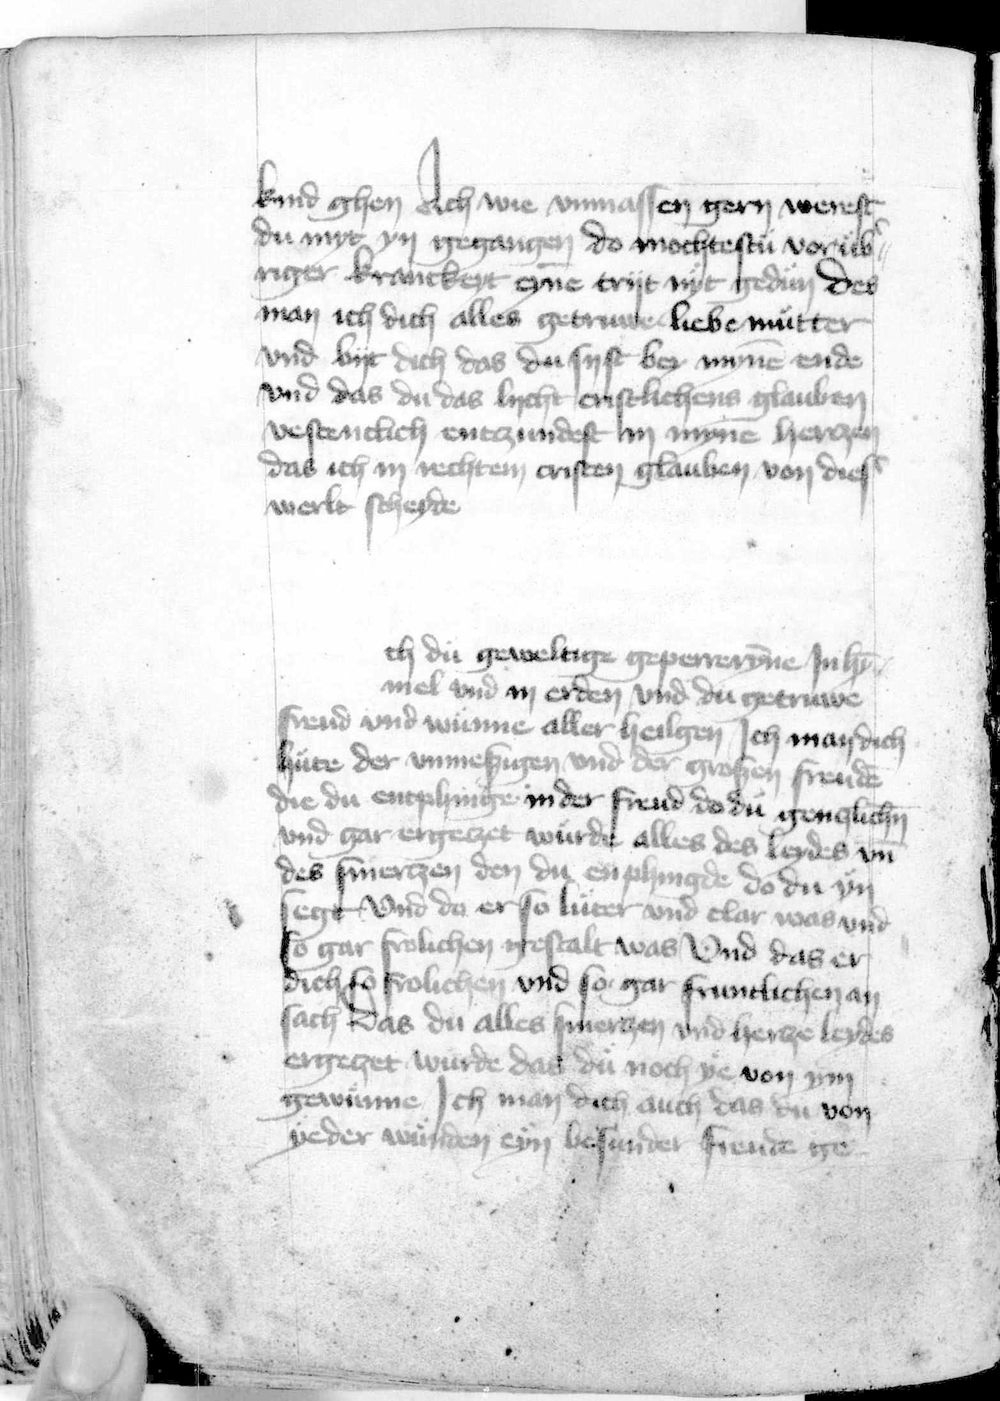 kind ghen Ach wie vnmassen gern werest
du myt yn gegangen do mochtestu vor üb͛
riger kranckeyt eyne̅ trijt nÿt gedün des
man ich dich alles getruwe liebe mütter
vnd bijt dich das du sijst bey myne̅ ende
vnd das du das lijcht cristlichens glauben
vestenclich entczundest in myne̅ herczen
das ich in rechtem cristen glauben von dies͛
werlt scheyde
ch dü geweltige geperreryne̅ In hy̅
mel vnd in erden vnd du getruwe
freud vnd wünne aller heilgen Ich man dich
hüte der vnmeßigen vnd der großen freude̅
die du entphinge in der freud do dü genczlich̅n
vnd gar ergeczet würde alles des leydes vn̅
des smerczen den du enphingde do du ÿn
segt Vnd do er so lüter vnd clar was vnd
so gar frolichen gestalt was Vnd das er
dich so frolichen vnd so gar fruntlichen an
sach Das du alles smerczen vnd hercze leydes
ergeczet würde das dü noch ÿe von ym
gewünne Ich man dich auch das du von
ÿeder wünden eÿn besunder freude ge